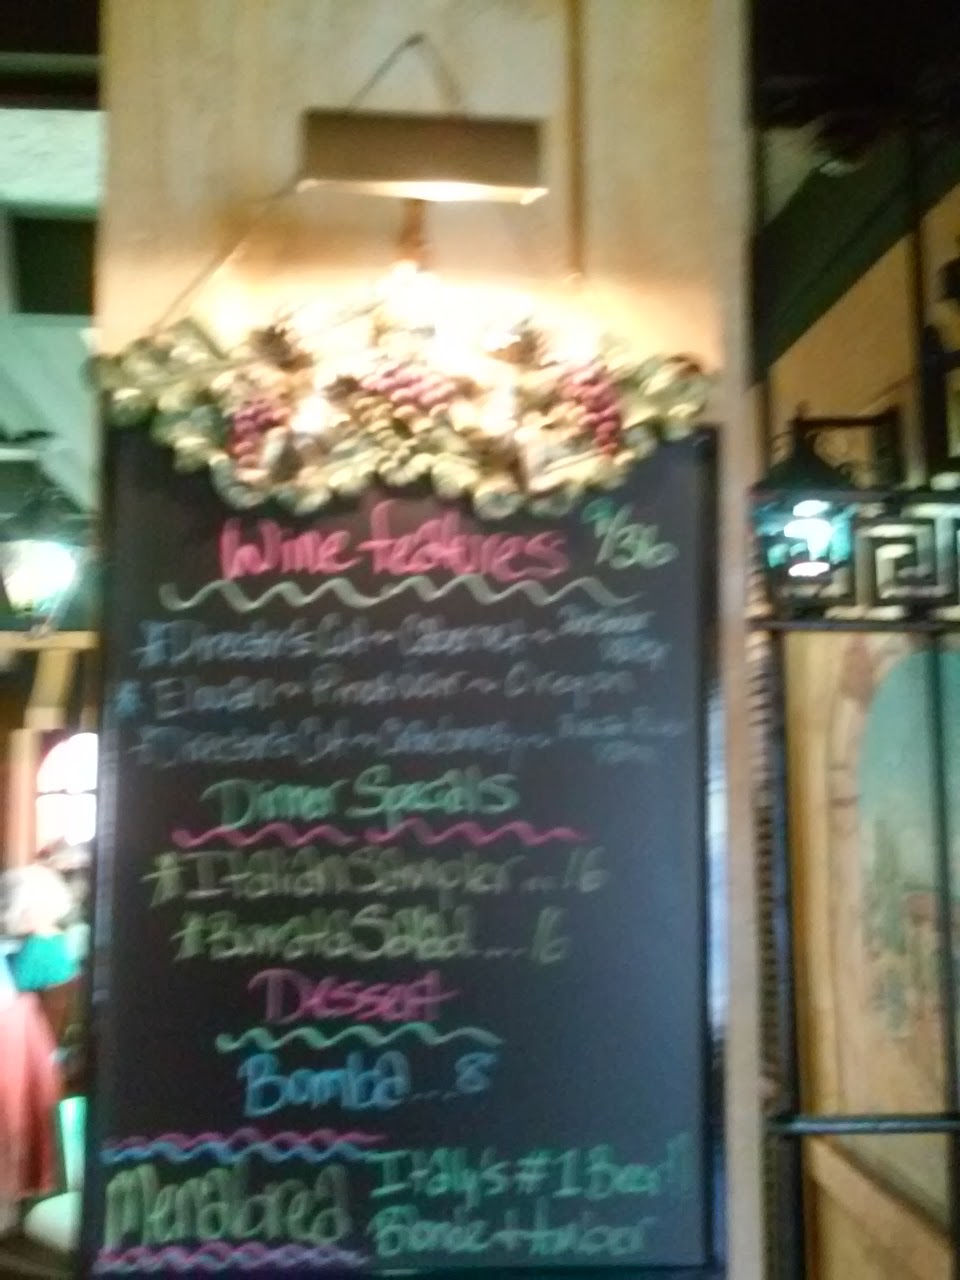 Wine features 9/36
#Director's Cut ~ Cabernet ~
* Elouan ~ Pinot Noir ~ Oregon
Director's Cut ~ Chardonnay ~
Dinner Specials
#Italian Sampler...16
#Burrata Salad....16
Dessert
Bomba....8
Menabrea Italy's #1 Beer!!
Blonde + Amber